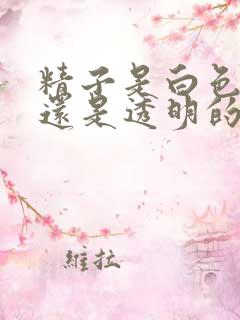 精子是白色
還是透明的
維拉